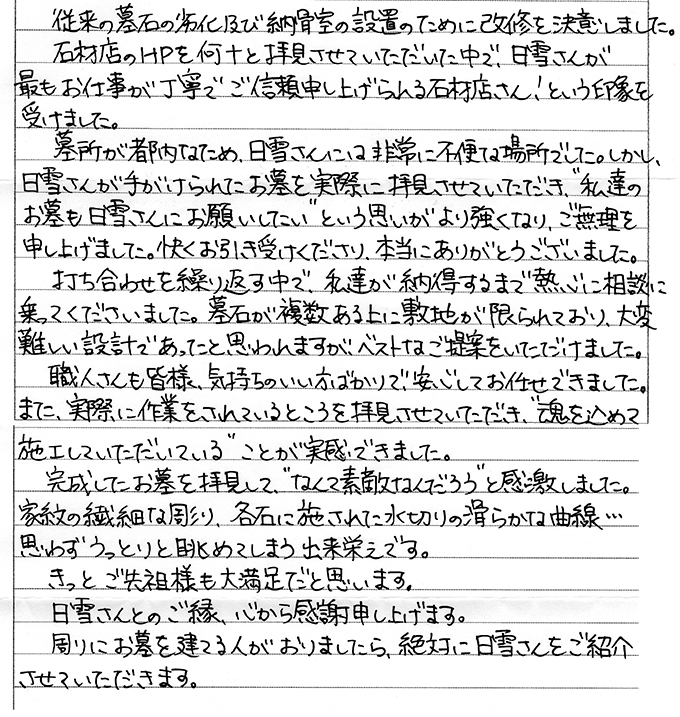 従来の墓石の劣化及び納骨室の設置のために改修を決意しました。
石材店のHPを何十と拝見させていただいた中で、日雪さんが
最もお仕事が丁寧でご信頼申し上げられる石材店さん!という印象を
受けました。
墓所が都内なため、日雪さんには非常に不便な場所でした。しかし、
日雪さんが手がけられたお墓を実際に拝見させていただき、"私達の
お墓も日雪さんにお願いしたい"という思いがより強くなり、ご無理を
申し上げました。快くお引き受けくださり、本当にありがとうございました。
打ち合わせを繰り返す中で、私達が納得するまで熱心に相談に
乗ってくださいました。墓石が複数ある上に敷地が限られており、大変
難しい設計であったと思われますが、ベストなご提案をいただけました。
職人さんも皆様、気持ちのいい方ばかりで、安心してお任せできました。
また、実際に作業をされているところを拝見させていただき、"魂を込めて
施工していただいている"ことが実感できました。
完成したお墓を拝見して、"なんて素敵なんだろう"と感激しました。
家紋の繊細な彫り、各石に施された水切りの滑らかな曲線…
思わずうっとりと眺めてしまう出来栄えです。
きっとご先祖様も大満足だと思います。
日雪さんとのご縁、心から感謝申し上げます。
周りにお墓を建てる人がおりましたら、絶対に日雪さんをご紹介
させていただきます。